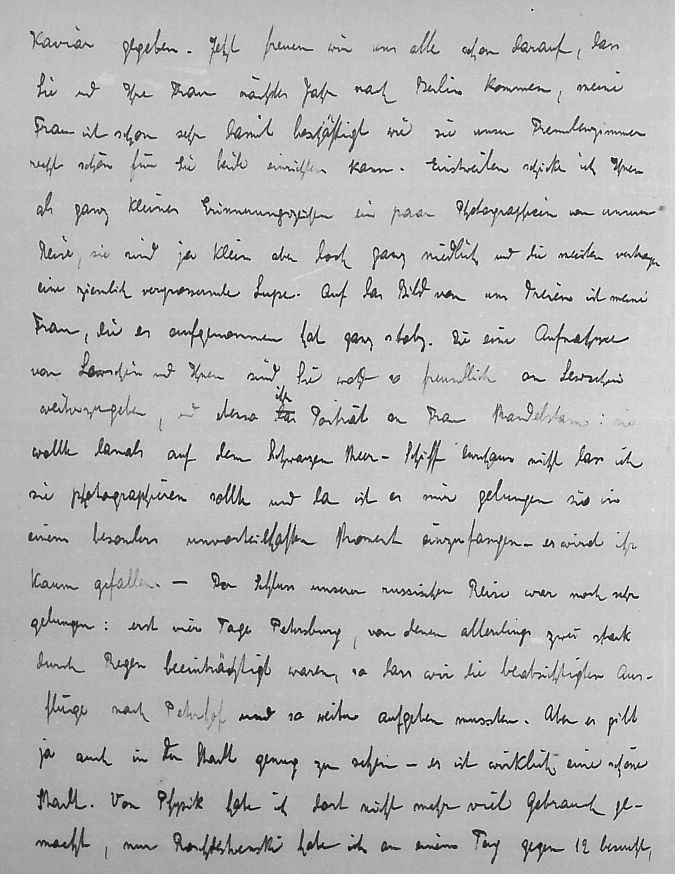 Kaviar gegeben. Jetzt freuen wir uns alle schon darauf, dass
Sie und Ihre Frau nächstes Jahr nach Berlin kommen, meine
Frau ist schon sehr damit beschäftigt wie sie unser Fremdenzimmer
recht schön für Sie beide einrichten kann. Einstweilen schicke ich Ihnen
als ganz kleines Erinnerungszeichen ein paar Photographien von unserer
Reise, sie sind ja klein aber doch ganz niedlich und die meisten vertragen
eine ziemlich vergrossernde Lupe. Auf das Bild von uns Dreien ist meine
Frau, die es aufgenommen hat ganz stolz. Die eine Aufnahme
von Lewschin und Ihnen sind Sie wohl so freundlich an Lewschin
weiterzugeben, und ebenso ihr Porträt an Frau Mandelstam: sie
wollte damals auf dem Schwarzen Meer-Schiff durchaus nicht dass ich
sie photographieren sollte und da ist es mir gelungen sie in
einem besonders unvorteilhaften Moment einzufangen - es wird ihr
kaum gefallen. — Der Schluss unserer russischen Reise war noch sehr
gelungen: erst vier Tage Petersburg, von denen allerdings zwei stark
durch Regen beeinträchtigt waren, so dass wir die beabsichtigten Aus-
flüge nach Peterhof und so weiter aufgeben mussten. Aber es gibt
ja auch in der Stadt genug zu sehen - es ist wirklich eine schöne
Stadt. Von Physik habe ich dort nicht mehr viel Gebrauch ge-
macht, nur Roschdestwenski habe ich an einem Tag gegen 12 besucht,